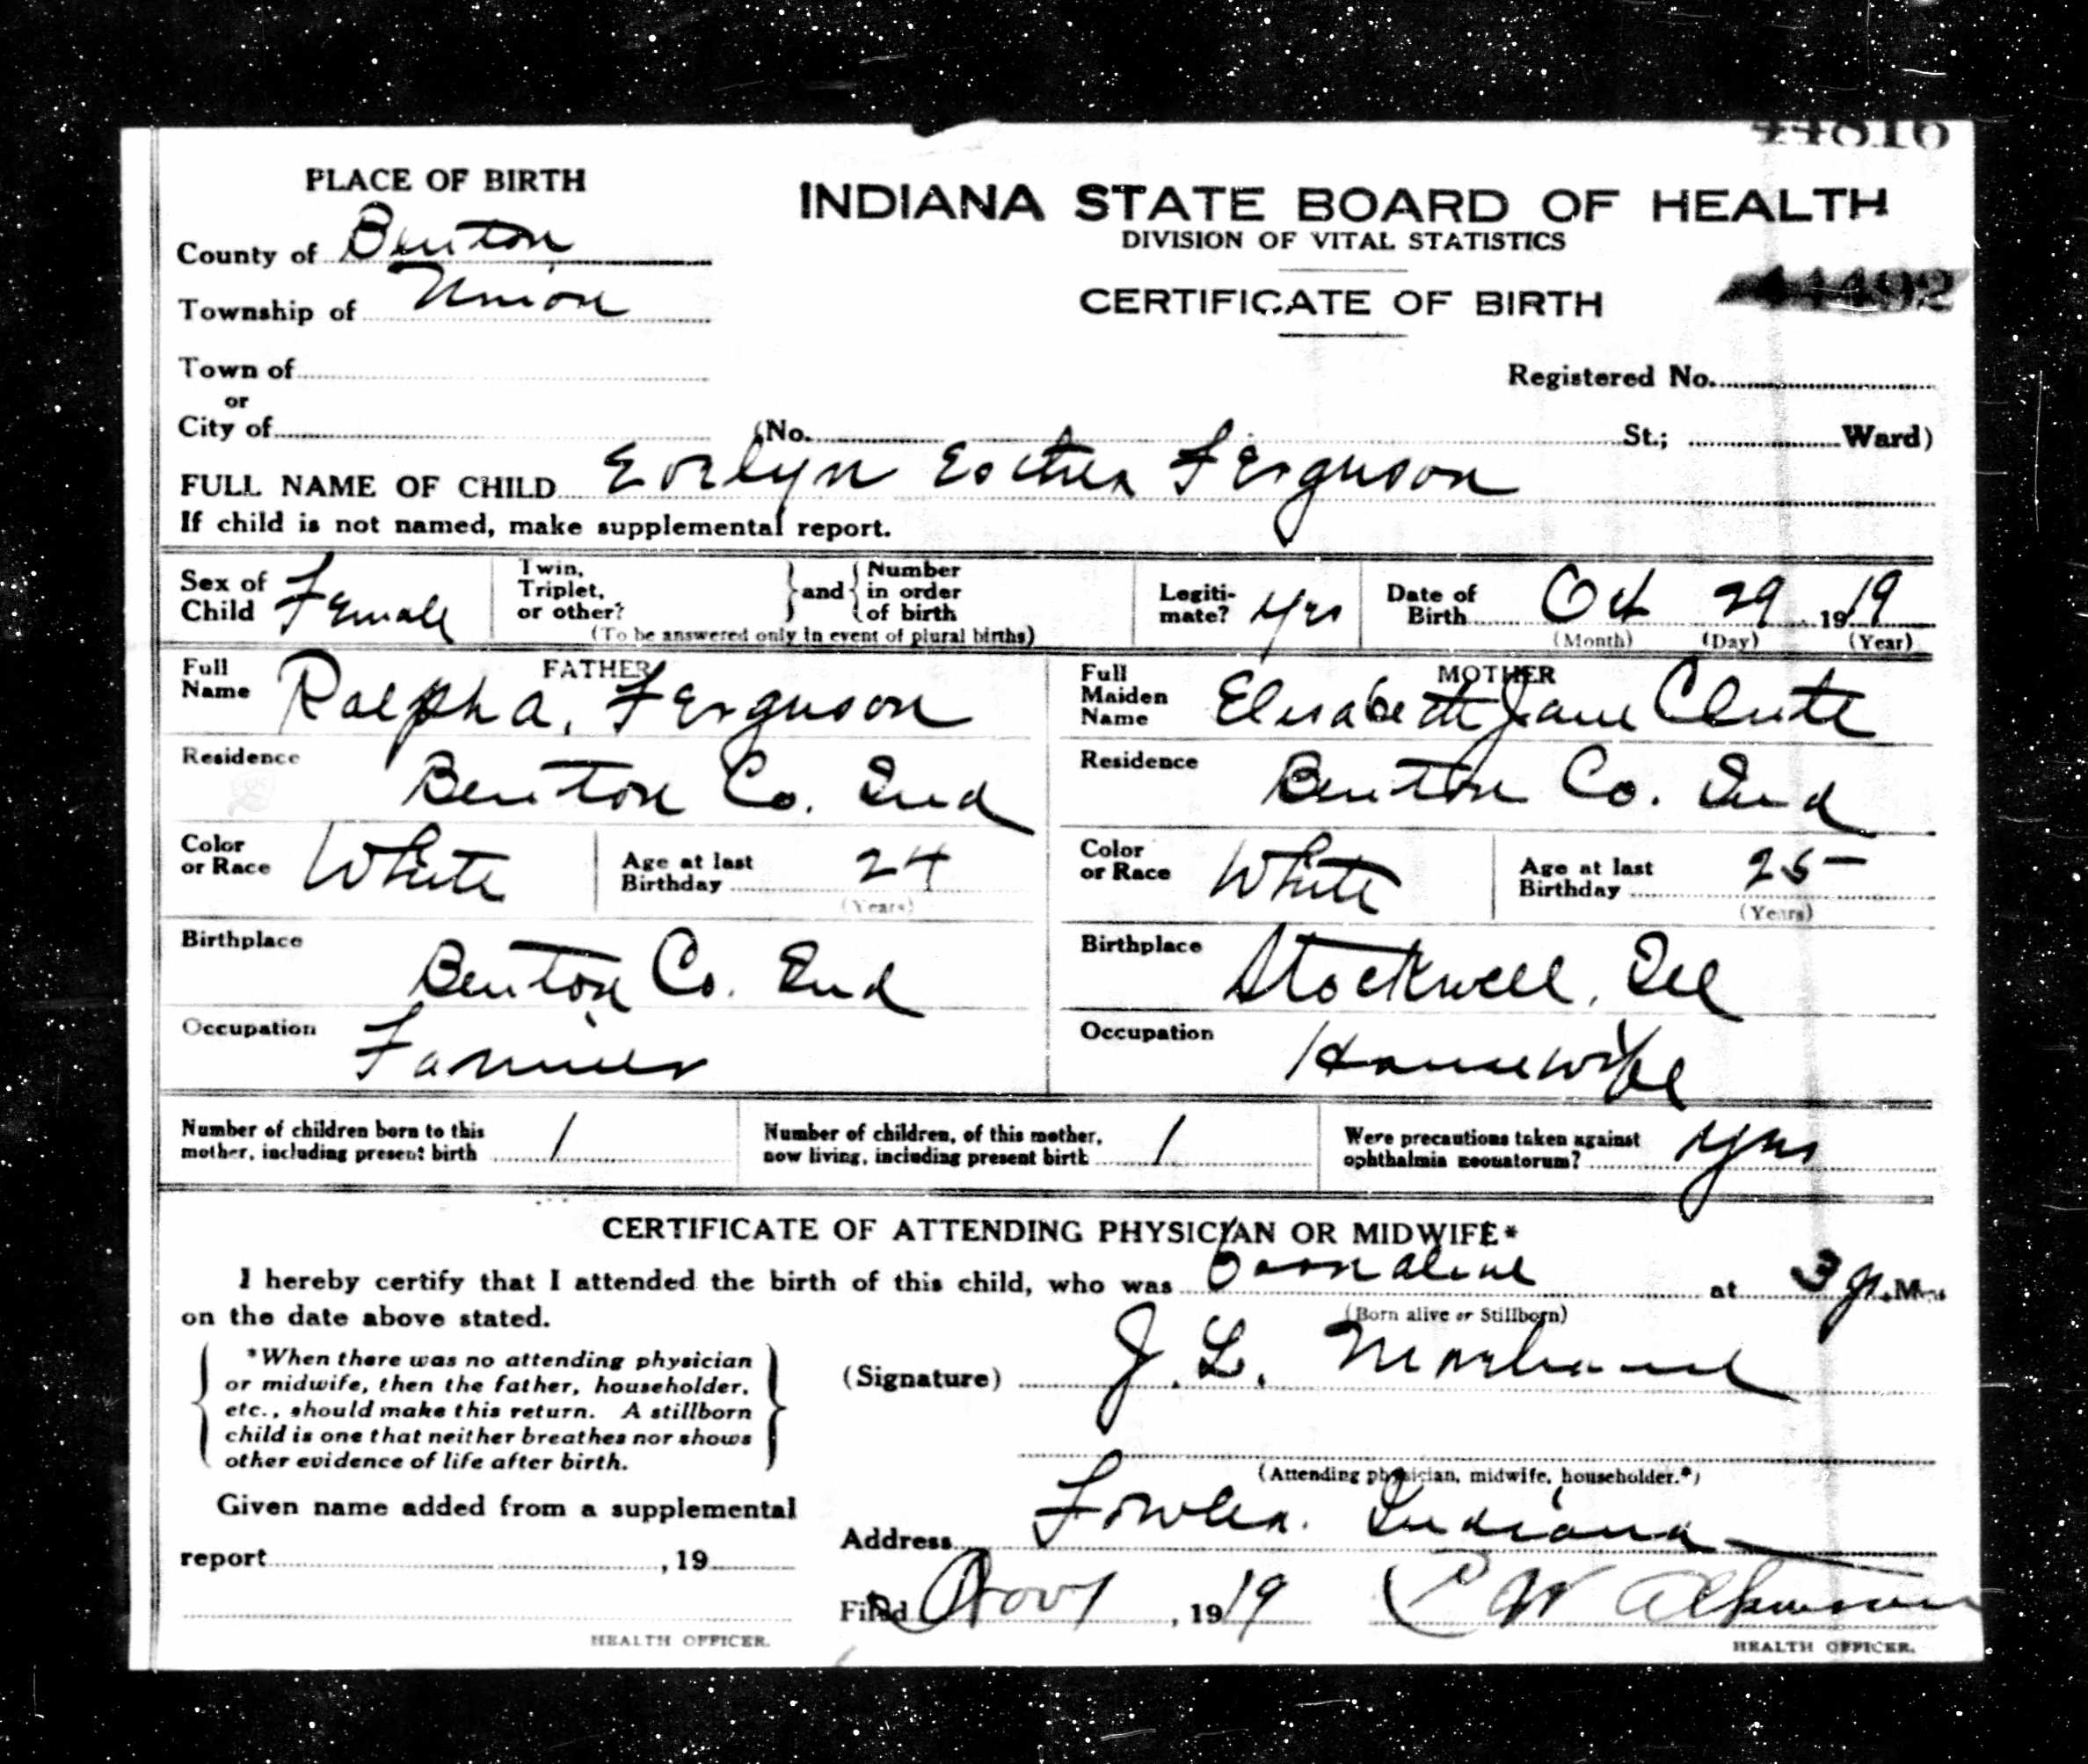 44816
PLACE OF BIRTH
INDIANA STATE BOARD OF HEALTH
DIVISION OF VITAL STATISTICS
County of Benton
Township of Union
CERTIFICATE OF BIRTH
44492
Town of
or
City of
Registered No.
(No. St.; Ward)
FULL NAME OF CHILD Evelyn Esther Ferguson
If child is not named, make supplemental report.
Sex of Child Female
Twin, Triplet, or other? } and { Number in order of birth
(To be answered only in event of plural births)
Legiti-mate? yes
Date of Birth Oct 29 1919
(Month) (Day) (Year)
FATHER
Full Name Ralph A. Ferguson
MOTHER
Full Maiden Name Elisabeth Jane Clute
Residence Benton Co. Ind
Residence Benton Co. Ind
Color or Race White
Age at last Birthday 24
(Years)
Color or Race White
Age at last Birthday 25
(Years)
Birthplace Benton Co. Ind
Birthplace Stockwell, Ill
Occupation Farmer
Occupation Housewife
Number of children born to this mother, including present birth 1
Number of children, of this mother, now living, including present birth 1
Were precautions taken against ophthalmia neonatorum? yes
CERTIFICATE OF ATTENDING PHYSICIAN OR MIDWIFE*
I hereby certify that I attended the birth of this child, who was born alive at 3 P. M.
(Born alive or Stillborn)
on the date above stated.
*When there was no attending physician
or midwife, then the father, householder,
etc., should make this return. A stillborn
child is one that neither breathes nor shows
other evidence of life after birth.
(Signature) J. L.
(Attending physician, midwife, householder.*)
Given name added from a supplemental
report , 19
HEALTH OFFICER.
Address Fowler. Indiana
Filed Nov 1, 1919 W Atkinson
HEALTH OFFICER.